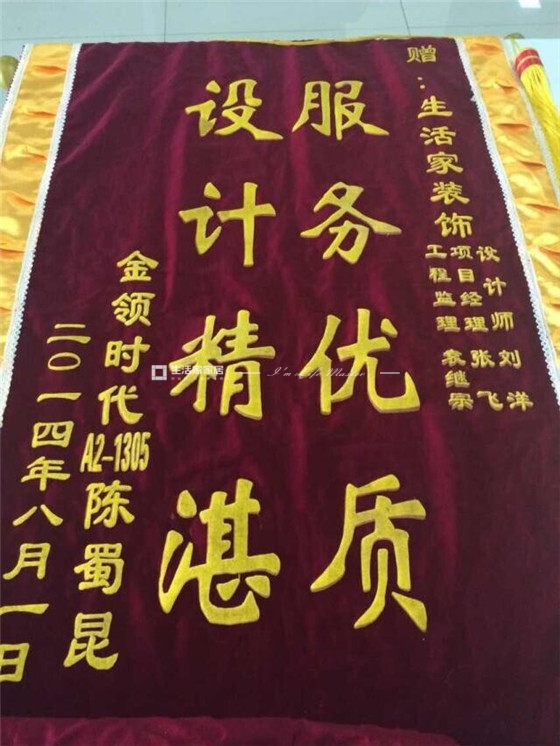 赠：生活家装饰
设计师 刘洋
项目经理 张飞
工程监理 袁继宗
服务优质
设计精湛
金领时代A2-1305陈蜀昆
二〇一四年八月一日
生活家家居